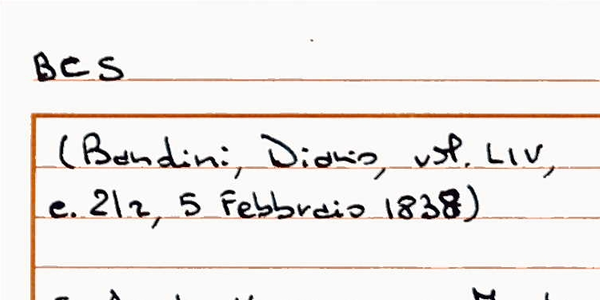 BCS
(Bandini, Diario, vol. LIV,
c. 212, 5 Febbraio 1838)